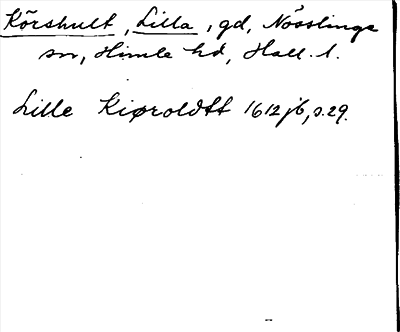 Körshult, Lilla, gd, Nösslinge
sn, Himle hd, Hall. l.
Lille Kiøroldtt 1612 jb, s. 29.